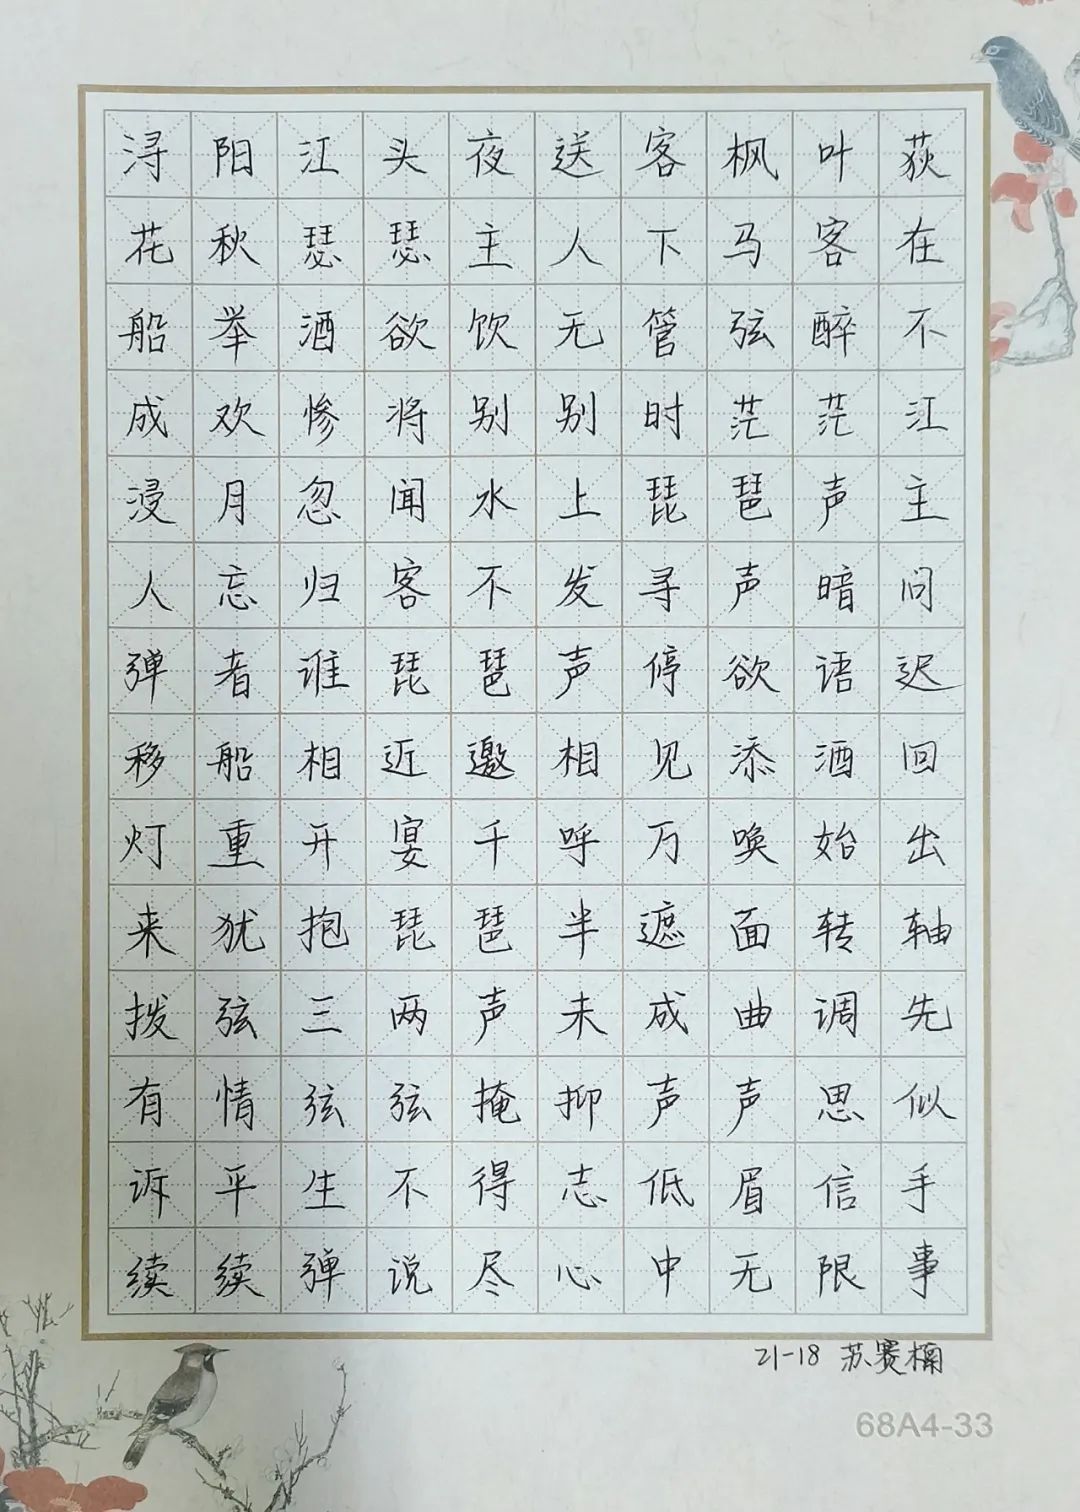 浔阳江头夜送客枫叶荻
花秋瑟瑟主人下马客在
船举酒欲饮无管弦醉不
成欢惨将别别时茫茫江
浸月忽闻水上琵琶声主
人忘归客不发寻声暗问
弹者谁琵琶声停欲语迟
移船相近邀相见添酒回
灯重开宴千呼万唤始出
来犹抱琵琶半遮面转轴
拨弦三两声未成曲调先
有情弦弦掩抑声声思似
诉平生不得志低眉信手
续续弹说尽心中无限事
21-18 苏赛楠
68A4-33